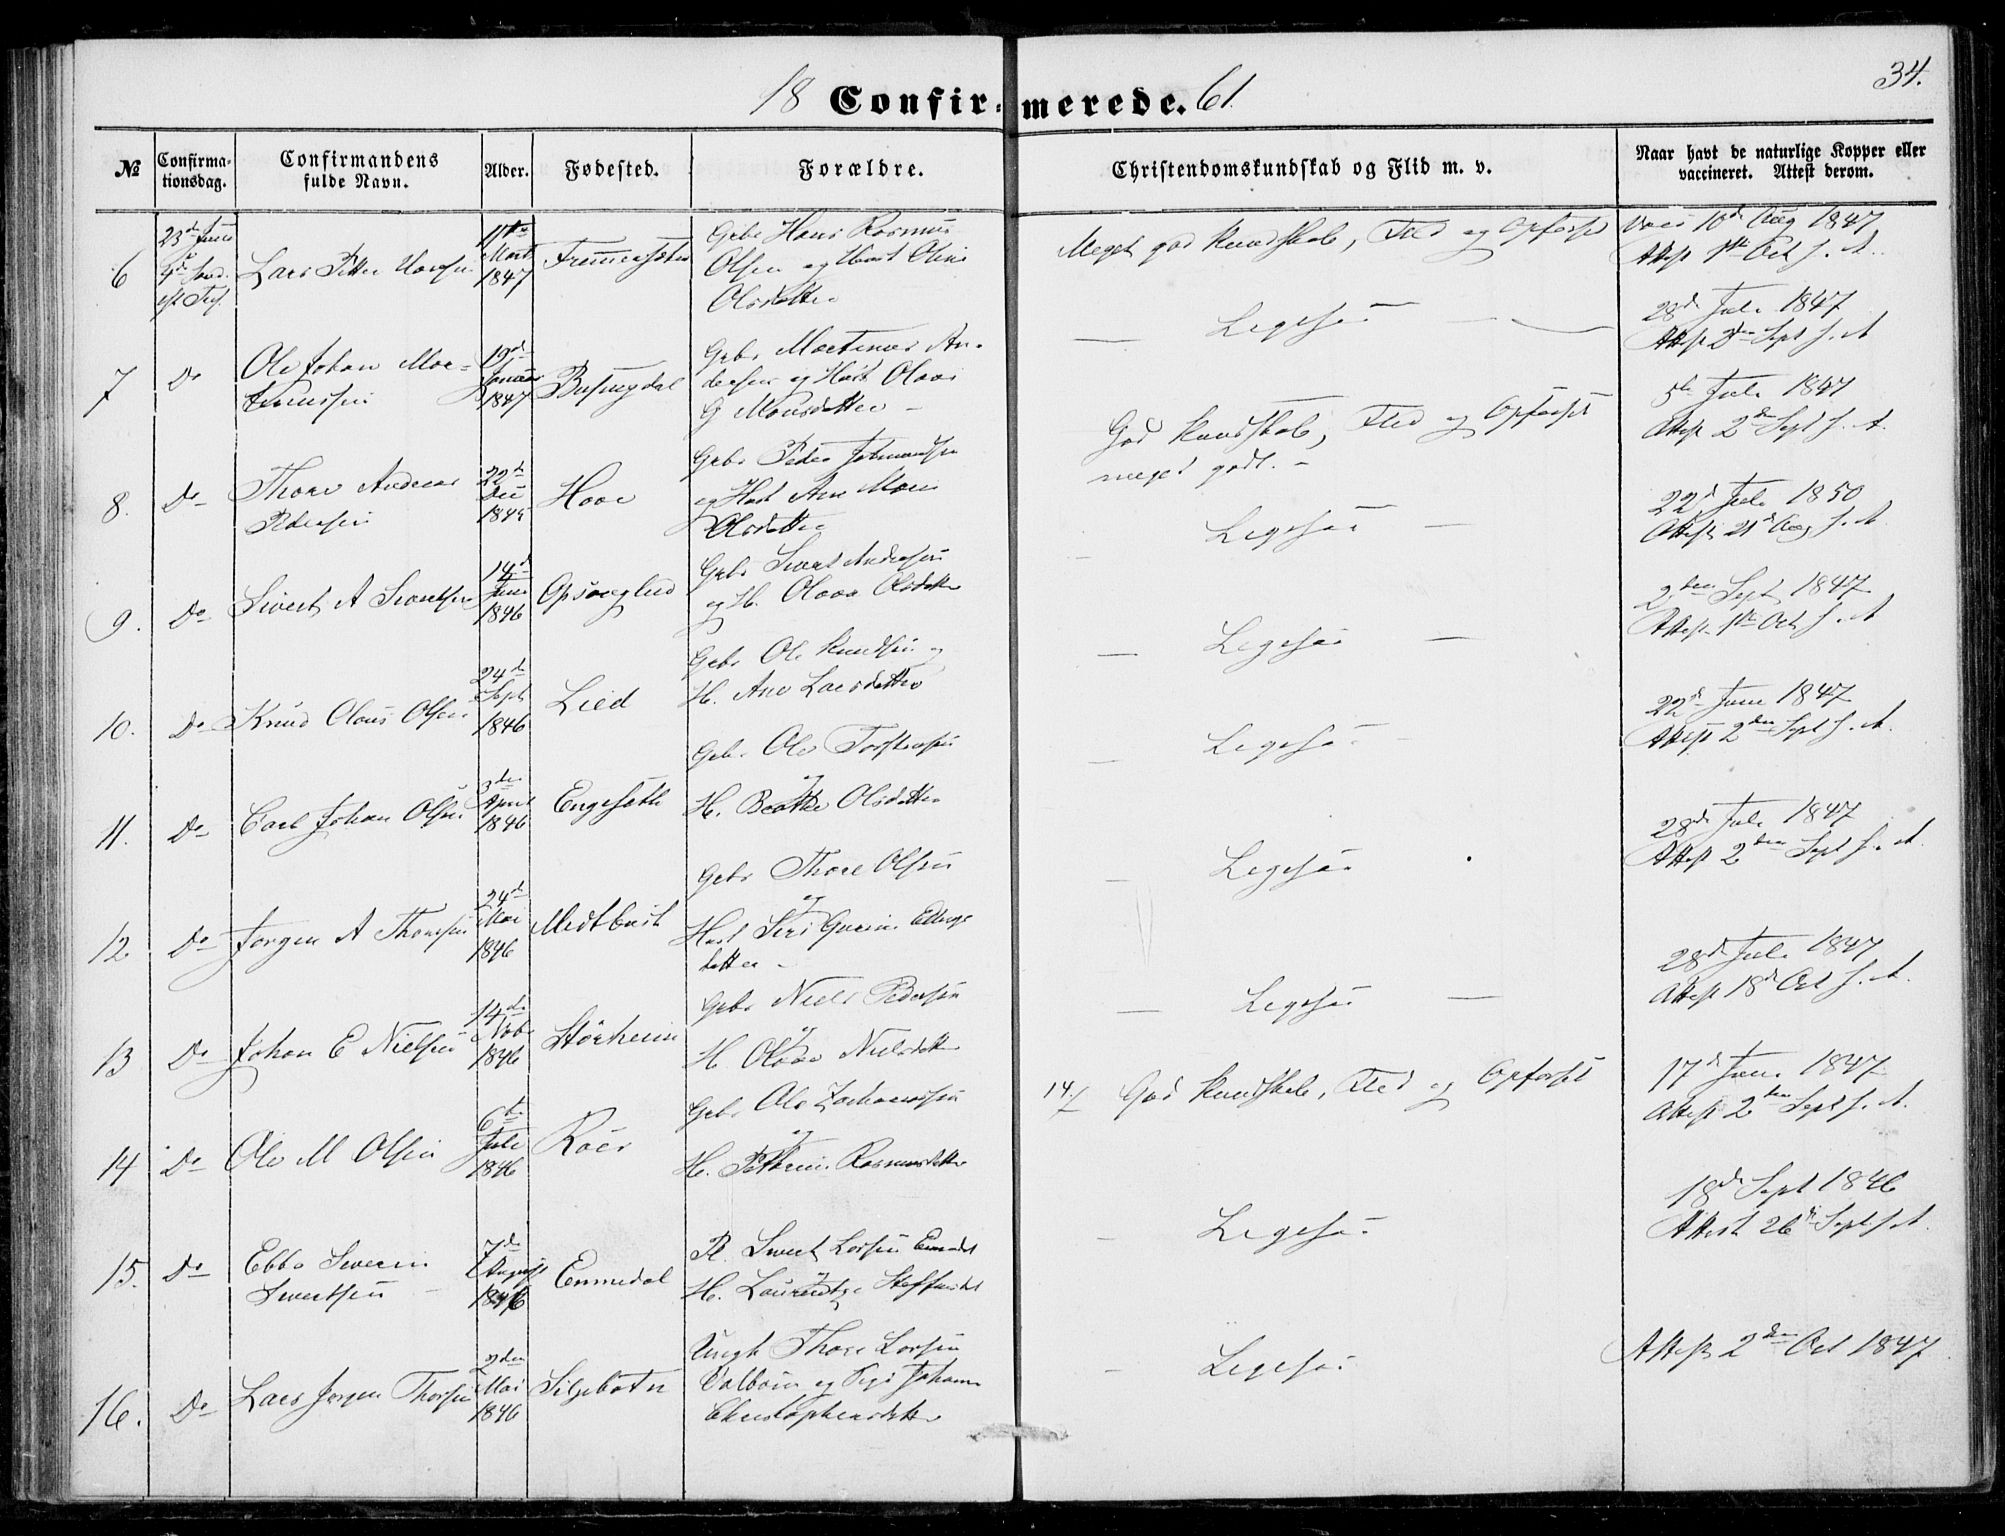 34.
18 Confirmerede. 61.
№
Confirmationsdag.
Confirmandens fulde Navn.
Alder.
Fødested.
Forældre.
Christendomskundskab og Flid m. v.
Naar havt de naturlige Kopper eller vaccineret. Attest derom.
6
23de Juni
4de
Lars Petter
11te Marts 1847
Gbr Hans Rasmus
Olsen og Hust Oline
Olsdatter
Meget god Kundskab, Flid og Opførsel
Vacc 10de Aug 1847
Attest 1ste Oct s. A.
7
Do
Ole Johan Mar-
tinussen
19de Januar 1847
Busengdal
Gbr Martinus An-
dersen og Hust Olave
G Monsdatter
— Ligesaa —
28de Juli 1847
Attest 2den Sept s. A
8.
Do
Thore Andreas
Pedersen
22de Dec 1845
Hove
Gbr Peder Johannesen
og Hust Ane Marie
Olsdatter
God Kundskab, Flid og Opførsel
meget godt. -
5te Juli 1847
Attest 2den Sept s. A.
9.
Do
Sivert A Sivertsen
14de Juni 1846
Gbr Sivert Andersen
og H. Olava Olsdatter
Ligesaa —
22de Juli 1850
Attest 21de Aug s. A
10.
Do
Knud Olaus Olsen
24de Sept 1846
Lied
Gbr Ole Knudsen og
H. Ane Larsdatter
— Ligesaa —
2den Sept 1847
Attest 1ste Oct s. A
11.
Do
Carl Johan Olsen
3die April 1846
Engesæth
Gbr. Ole Torstensen
og
H. Beathe Olsdatter
— Ligesaa
22de Juni 1847
Attest 2den Sept s. A.
12
Do
Jørgen A Thoresen
24de Mai 1846
Medtbust
Gbr Thore Olsen
og
Hust Siri Gurine
datter -
— Ligesaa
28de Juli 1847
Attest 2den Sept s. A.
13
Do
Johan E Nielsen
14de Novbr 1846
Störheim
Gbr Niels Pedersen
og
H Olave Nielsdatter
Ligesaa —
28de Juli 1847
Attest 18de Oct s. A.
14
Do
Ole M Olsen
6te Juli 1846
Roes
Gbr Ole Zachariassen
og
H. Pethrine Rasmusdatter
14./ God Kundskab, Flid og Opførsel
17de Juni 1847
Attest 2den Sept s. A.
15.
Do
Ebbe Severin
Sivertsen
7de August 1846
Emmedal
Pl. Sivert Larsen
og
H. Laurentze
- Ligesaa
18de Sept 1846
Attest 26de Sept s. A
16.
Do
Lars Jørgen Thorsen
2den Mai 1846
Siljebotn
Ungk Thore Larsen
og Pige Johanne
Christophersdatter
- Ligesaa
Attest 2den Oct 1847